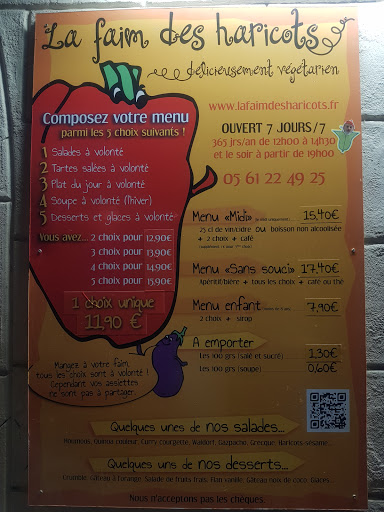 La faim des haricots
délicieusement végétarien
Composez votre menu
parmi les 5 choix suivants !
www.lafaimdesharicots.fr
OUVERT 7 JOURS/7
365 jrs/an de 12h00 à 14h30
et le soir à partir de 19h00
05 61 22 49 25
1 Salades à volonté
2 Tartes salées à volonté
3 Plat du jour à volonté
4 Soupe à volonté (hiver)
5 Desserts et glaces à volonté
Vous avez... 2 choix pour 12,90€
3 choix pour 13,90€
4 choix pour 14,90€
5 choix pour 15,90€
1 choix unique
11,90 €
Menu «Midi» 15,40€
25 cl de vin/cidre ou boisson non alcoolisée
+ 2 choix + café
Menu «Sans souci» 17,40€
Apéritif/bière + tous les choix + café ou thé
Menu enfant 7,90€
2 choix + sirop
A emporter
Les 100 grs (salé et sucré) 1,30€
Les 100 grs (soupe) 0,60€
Mangez à votre faim,
tous les choix sont à volonté !
Cependant vos assiettes
ne sont pas à partager.
Quelques unes de nos salades...
Poivrons, Quinoa couleur, Curry courgette, Waldorf, Gazpacho, Grecque, Haricots-sésame...
Quelques uns de nos desserts...
Crumble, Gâteau à l'orange, Salade de fruits frais, Flan vanille, Gâteau noix de coco, Glaces...
Nous n'acceptons pas les chèques.